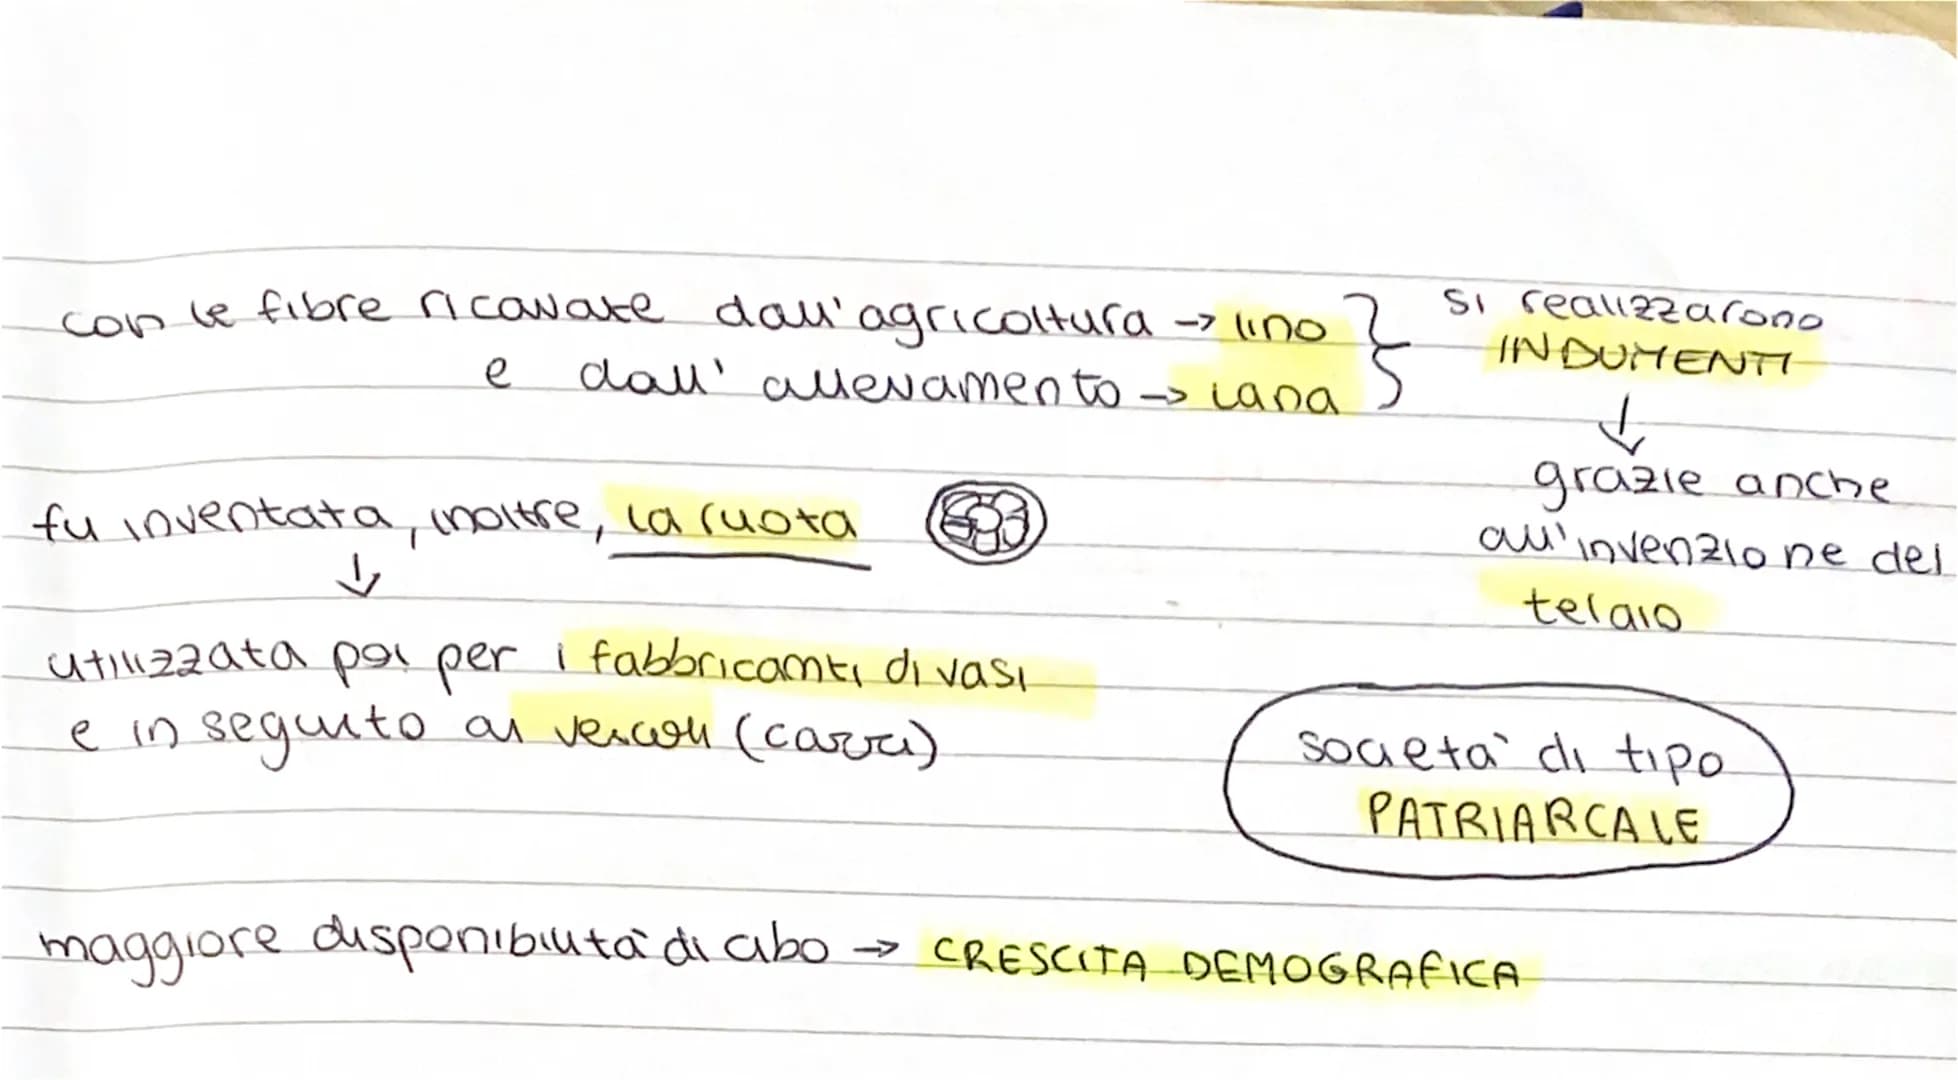 con le fibre ricavate dall'agricoltura → lino
e dall'allevamento → lana
si realizzarono
INDUMENTI
↓
grazie anche
all'invenzione del
telaio
fu inventata, inoltre, la ruota
↓
utilizzata poi per i fabbricamti di vasi
e in seguito ai veicoli (carri)
società di tipo
PATRIARCALE
maggiore disponibilità di cibo → CRESCITA DEMOGRAFICA